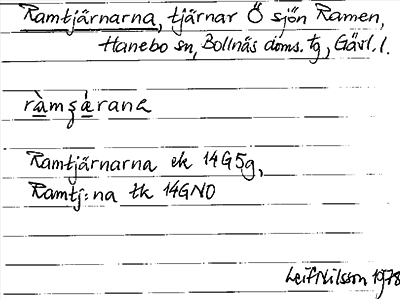 Ramtjärnarna, tjärnar Ö sjön Ramen,
Hanebo sn, Bollnäs doms. tg, Gävl. l.
ràmʂæ̀rana
Ramtjärnarna ek 14G5g,
Ramtj:na tk 14GNO
Leif Nilsson 1978